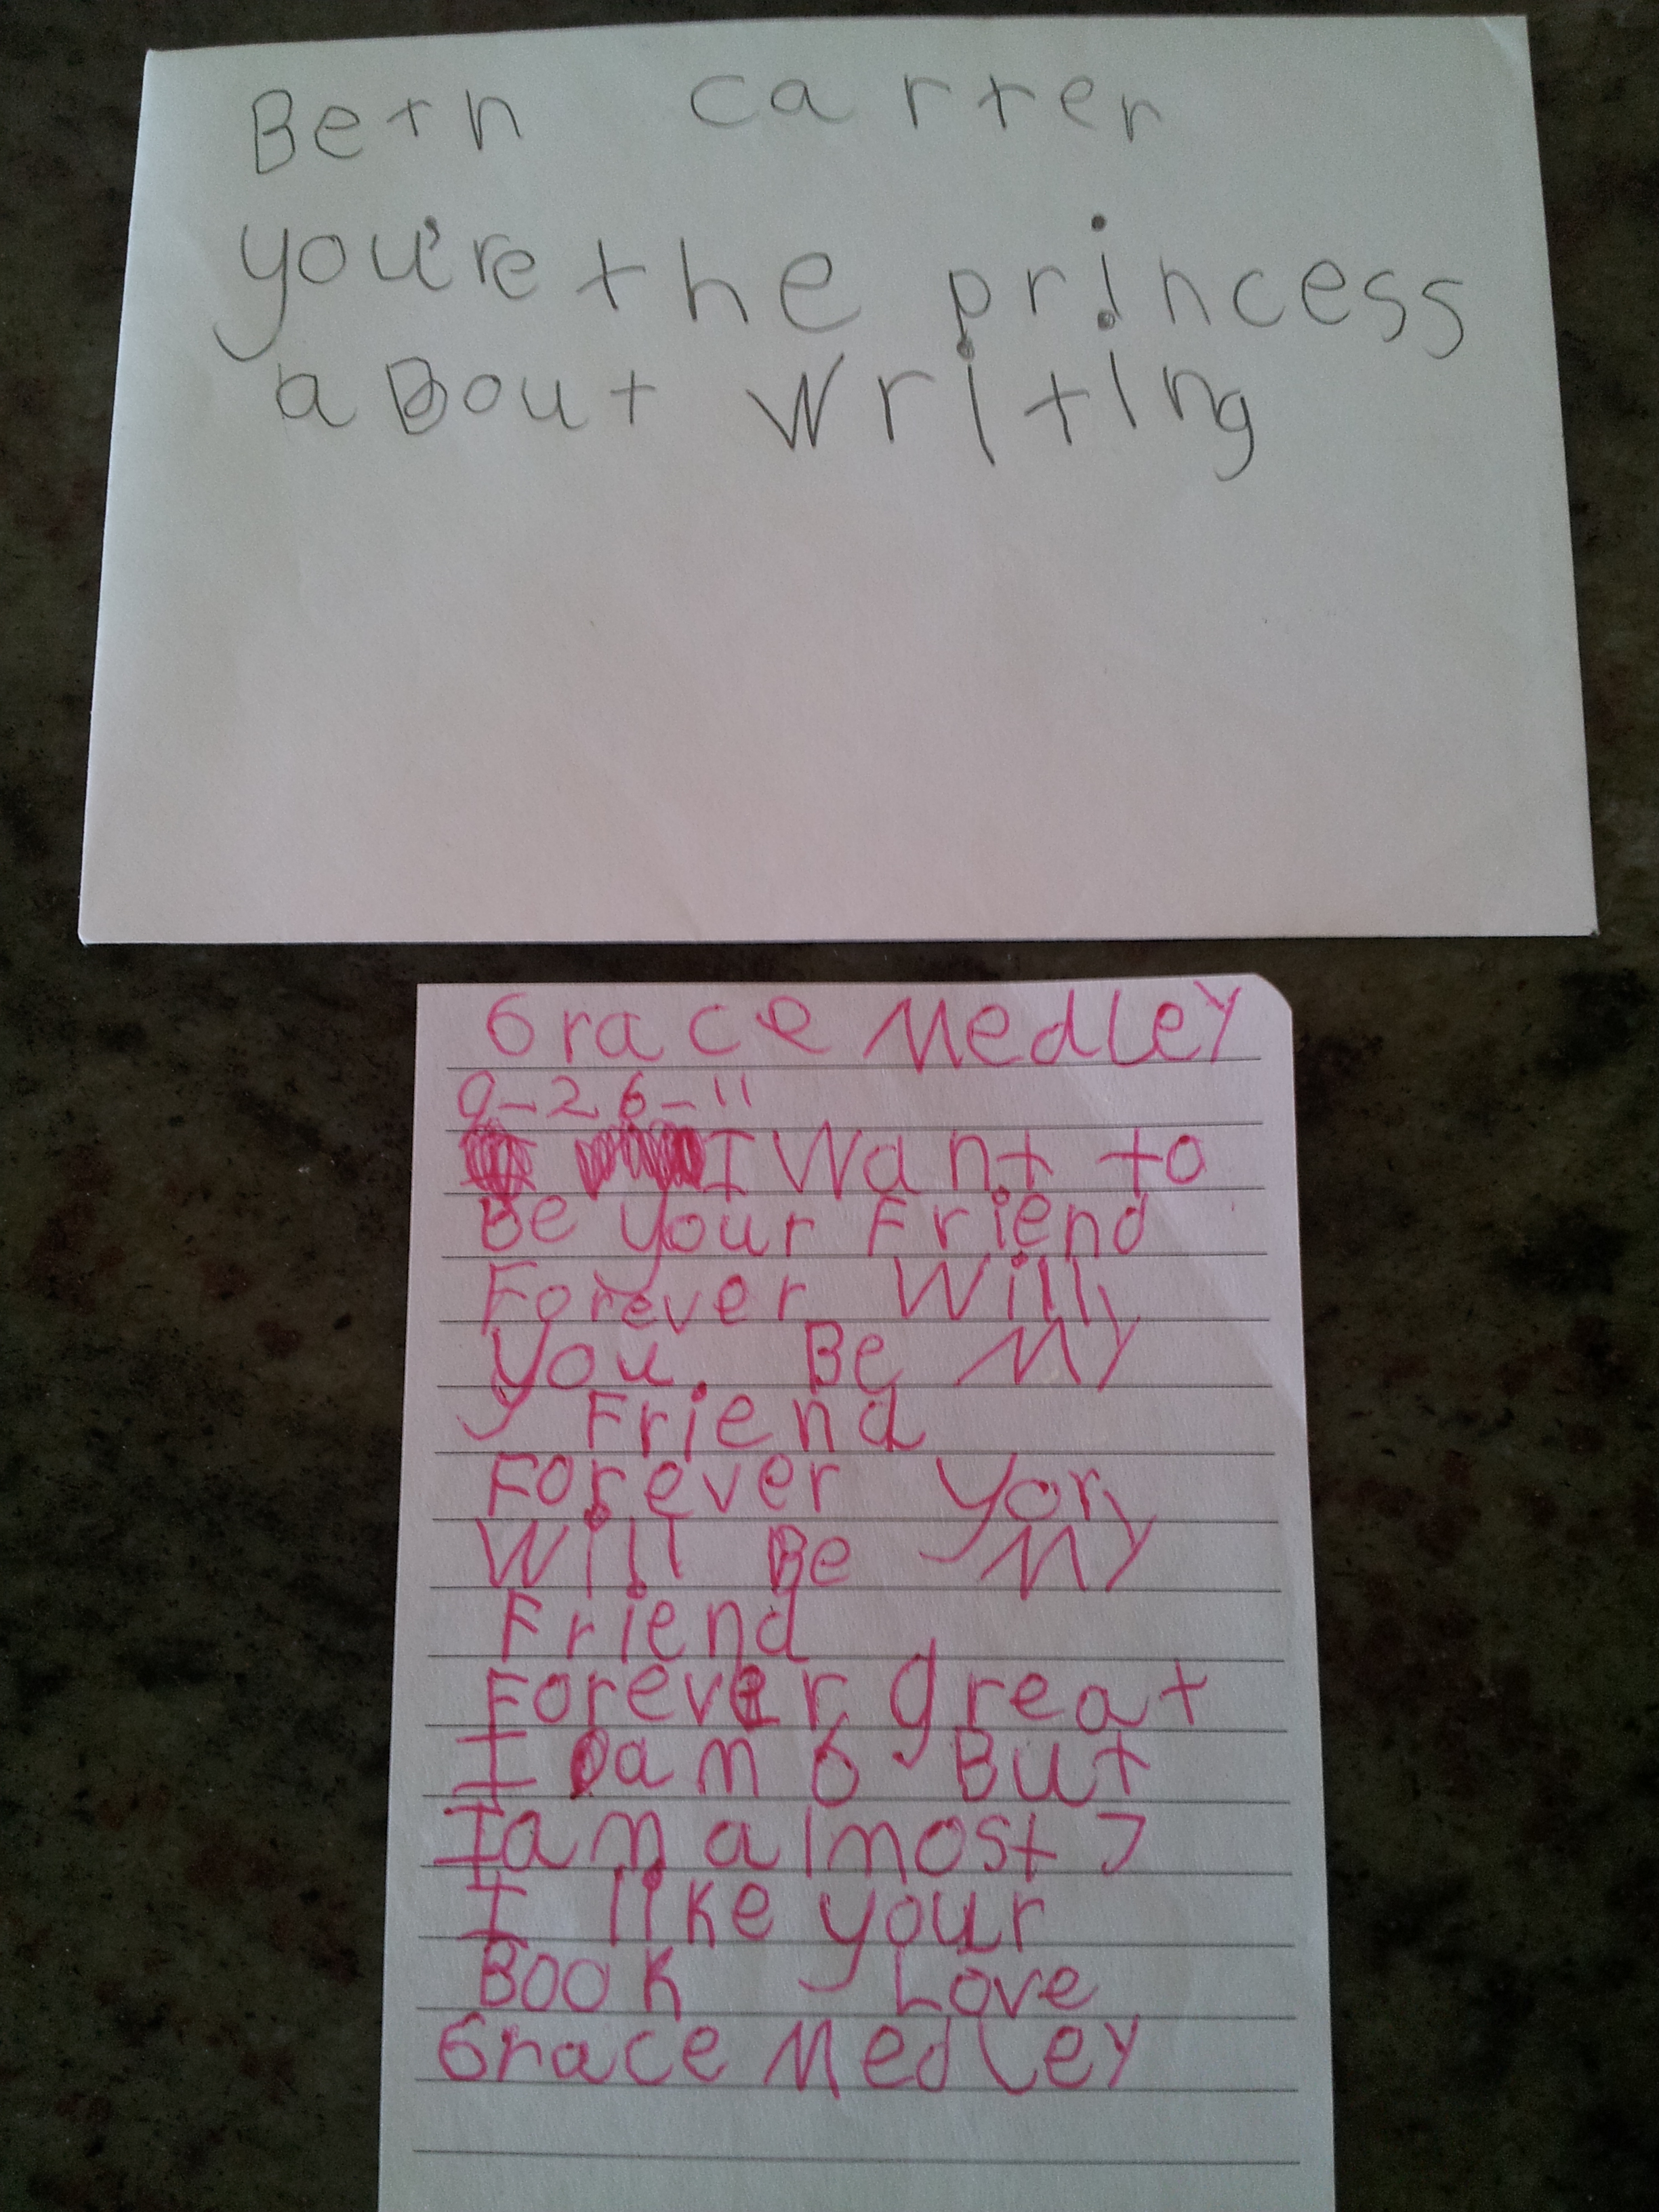 Beth carter
you're the princess
aBout writing
Grace MedleY
9-26-11
I Want to
Be your Friend
Forever Will
you Be MY
Friend
Forever yor
Will Be MY
Friend
Forever great
I am 6 But
I am almost 7
I like your
Book Love
Grace MedleY